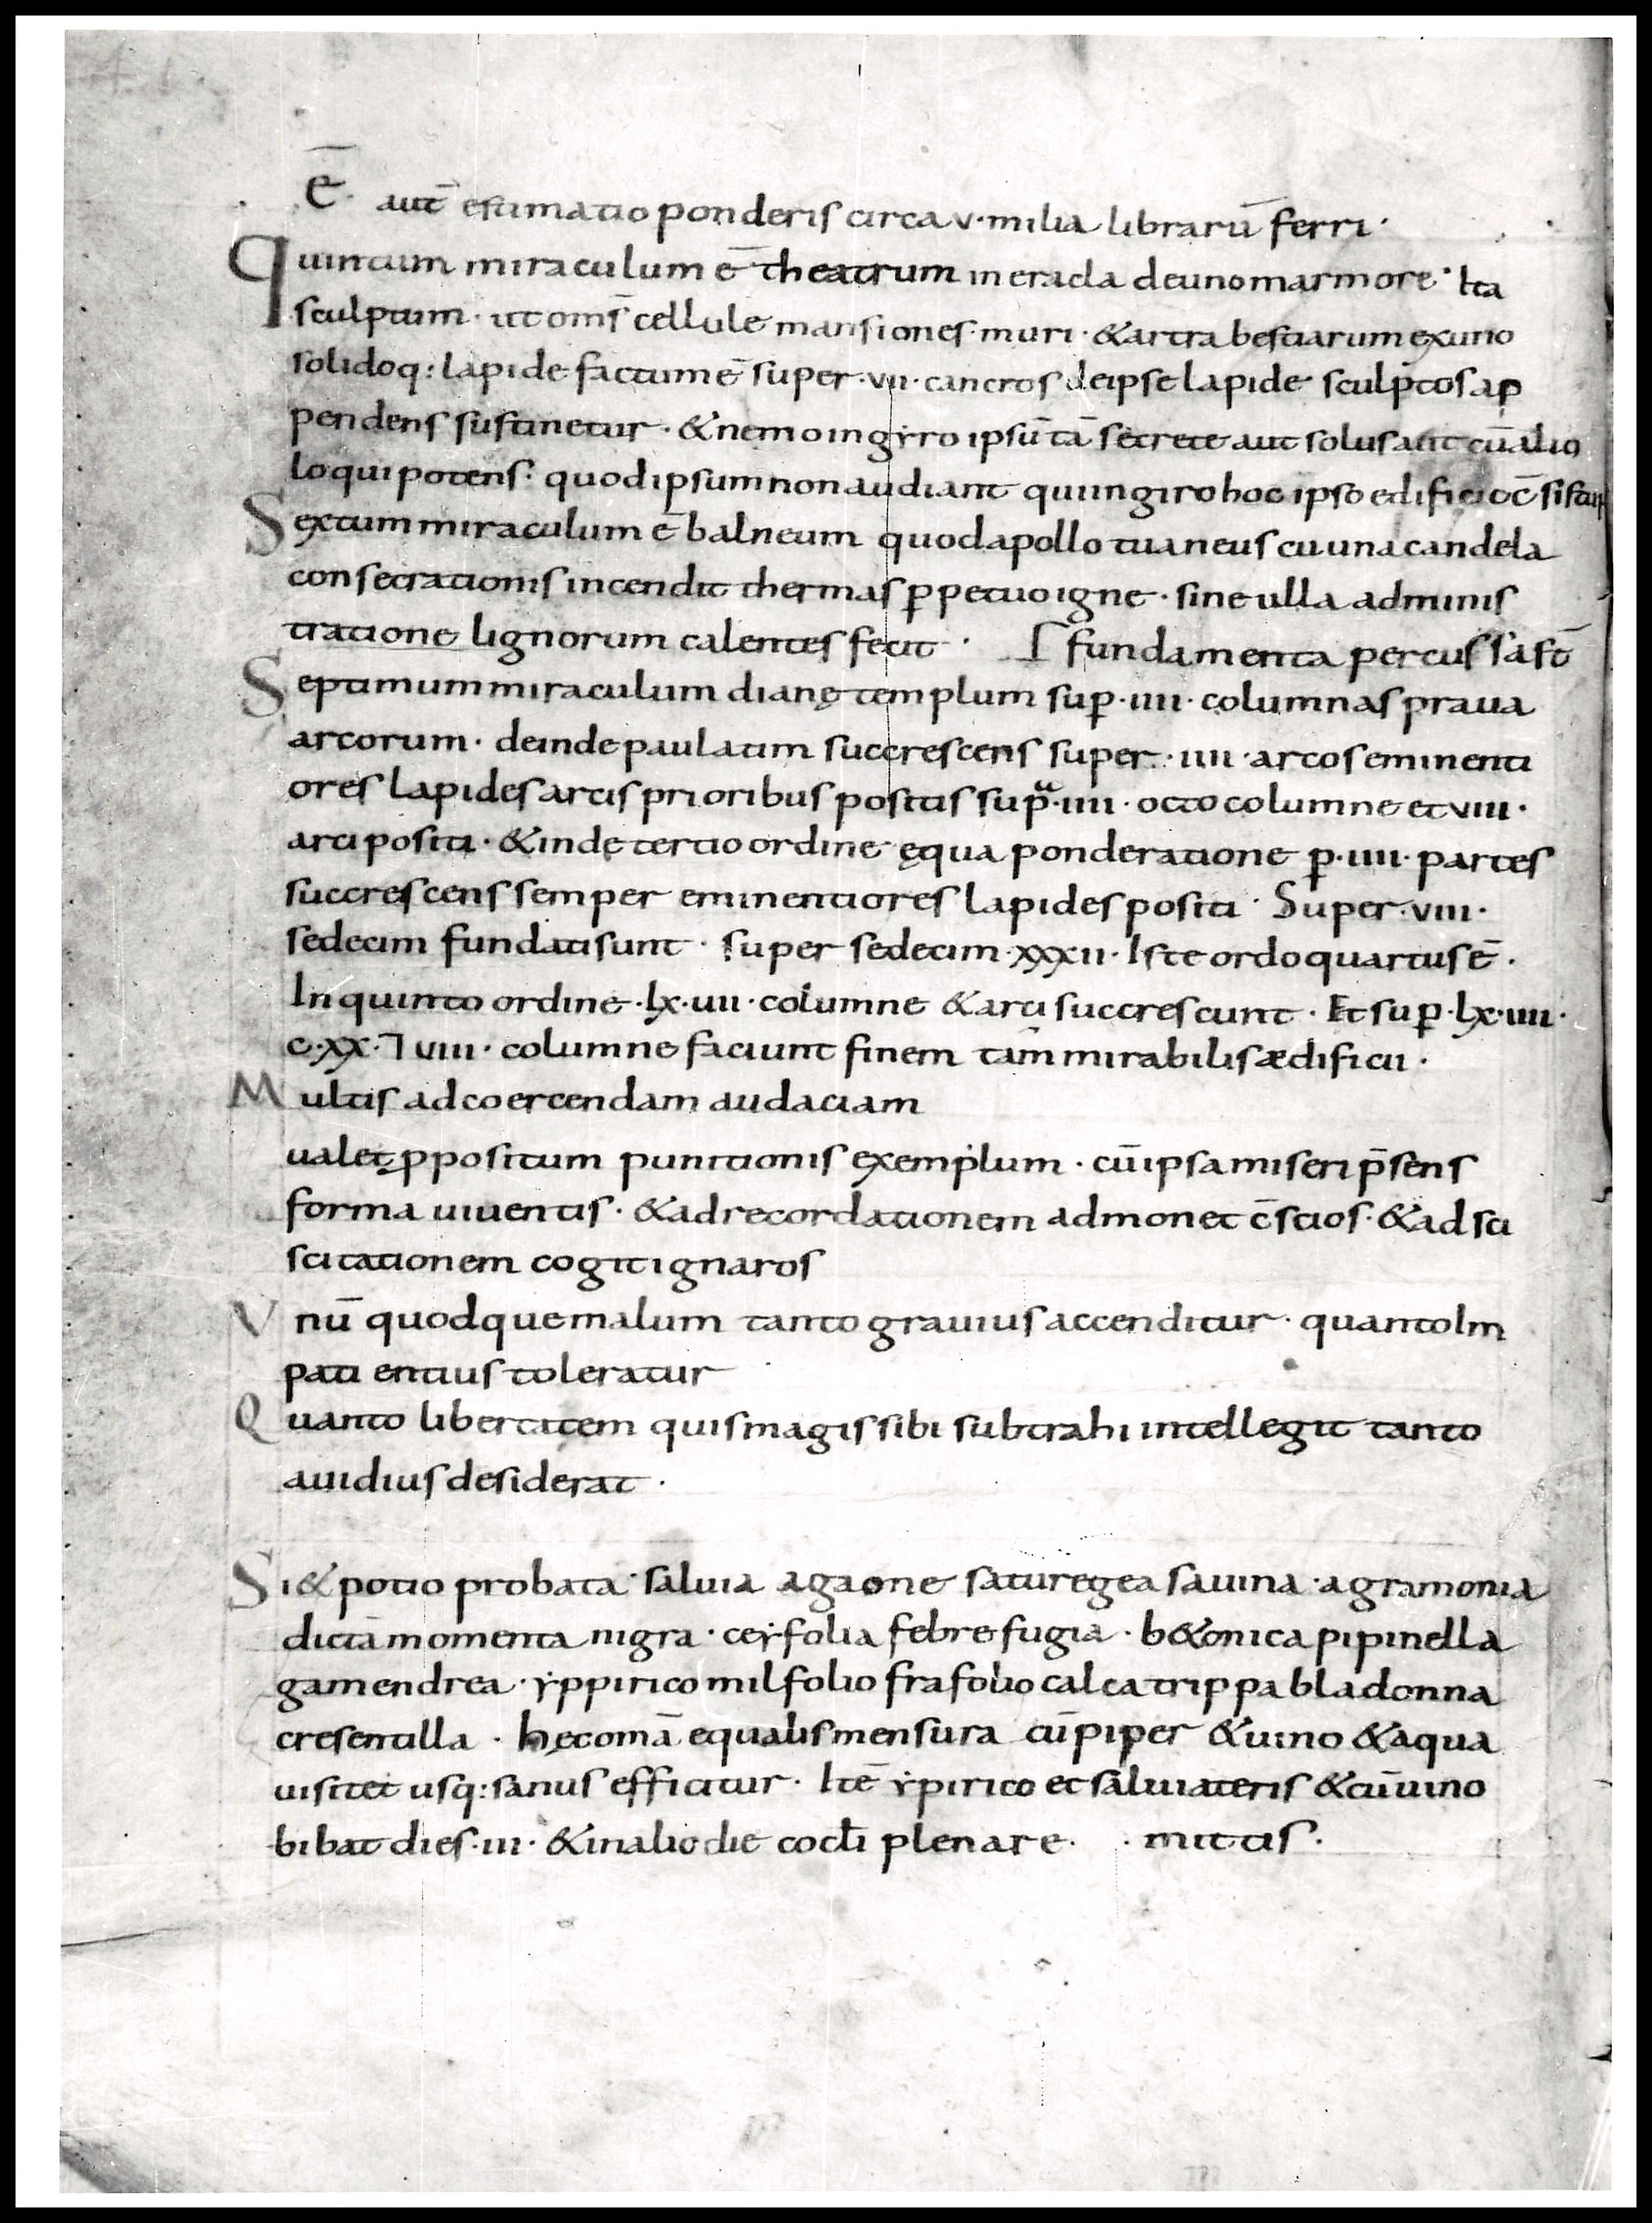 ē. aut̄ estimatio ponderis circa v·milia librarū ferri·
Quintum miraculum ē theatrum in eracla de uno marmore· Ita
sculptum· ut om̄s cellule mansiones muri· & artra bestiarum exuno
solidoq: lapide factum ē super·vii·cancros de ipse lapide sculptos ap
pendens sustinetur· & nemo in gẏro ipsū tā secrete aut solus aut cū alio
loqui potens· quod ipsum non audiant qui in giro hoc ipso edificio c̄sistu
Sextum miraculum ē balneum quod apollo tuaneus cu una candela
consecrationis incendit thermas ꝑpetuo igne· sine ulla adminis
tratione lignorum calentes fecit· Γ fundamenta percussa st̄
Septimum miraculum dianę templum suꝑ·iiii·columnas praua
arcorum· deinde paulatim succrescens super·iiii·arcos eminenti
ores lapides arcis prioribus positis supᵃ·iiii·octo columne et viii·
arci positi· & inde tertio ordine ęqua ponderatione ꝑ·iiii·partes
succrescens semper eminentiores lapides positi· Super·viii·
sedecim fundati sunt· super sedecim·xxxii·Iste ordo quartus ē·
In quinto ordine·lx·iiii·columne & arci succrescunt· Et suꝑ·lx·iiii·
c·xx·⁊viii·columne faciunt finem tam mirabilis ædificii·
Multis ad coercendam audaciam
ualet ꝓpositum punitionis exemplum· cū ipsa miseri p̄sens
forma uiuentis· & ad recordationem admonet c̄scios· & ad sci
scitationem cogit ignaros
Vnū quodque malum tanto grauius accenditur· quanto Im
pati entius toleratur
Quanto libertatem quis magis sibi subtrahi intellegit tanto
auidius desiderat·
Si & potio probata· saluia agaone saturegea sauina· agramonia
dictā momenta nigra· ceẏfolia febrefugia· b&onica pipinella
gamendrea· ẏppirico milfolio frafolio calcatrippa bladonna
cresentilla· hęc omā equalis mensura cū piper & uino & aqua
uisitet usq: sanus efficitur· Itē ẏpirico et saluia teris & cū uino
bibat dies·iii· & in alio die cocł̄i plenare· · mittis·